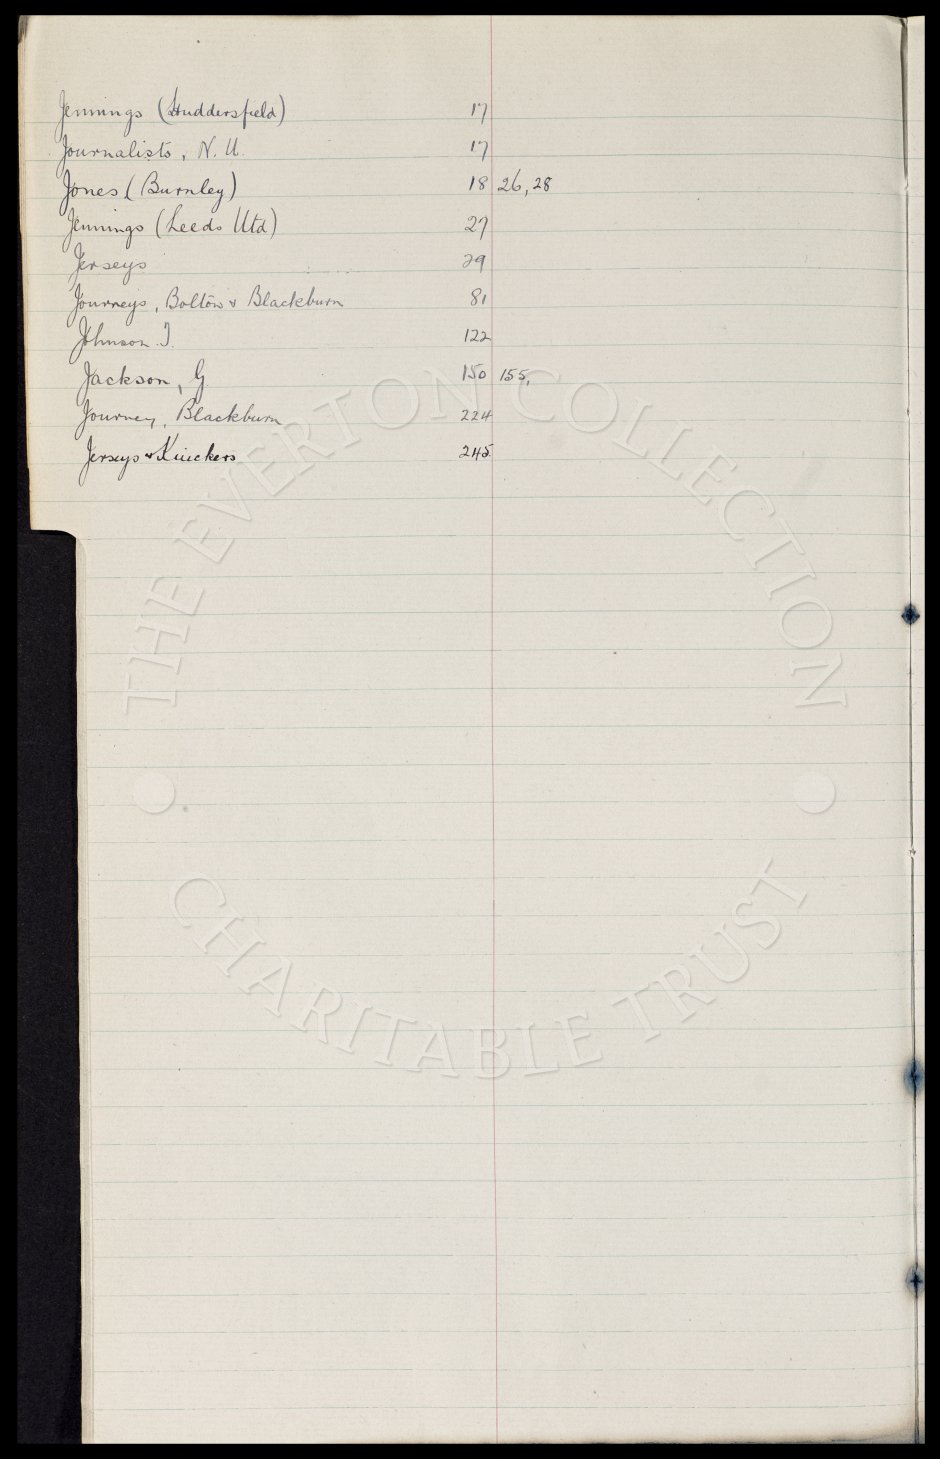 Jennings (Huddersfield) 17
Journalists, N. U. 17
Jones (Burnley) 18 26, 28
Jennings (Leeds Utd) 27
Jerseys 29
Journeys, Bolton & Blackburn 81
Johnson. T. 122
Jackson, G 150 155,
Journey, Blackburn 224
Jerseys & Knickers 245
THE EVERTON COLLECTION
CHARITABLE TRUST